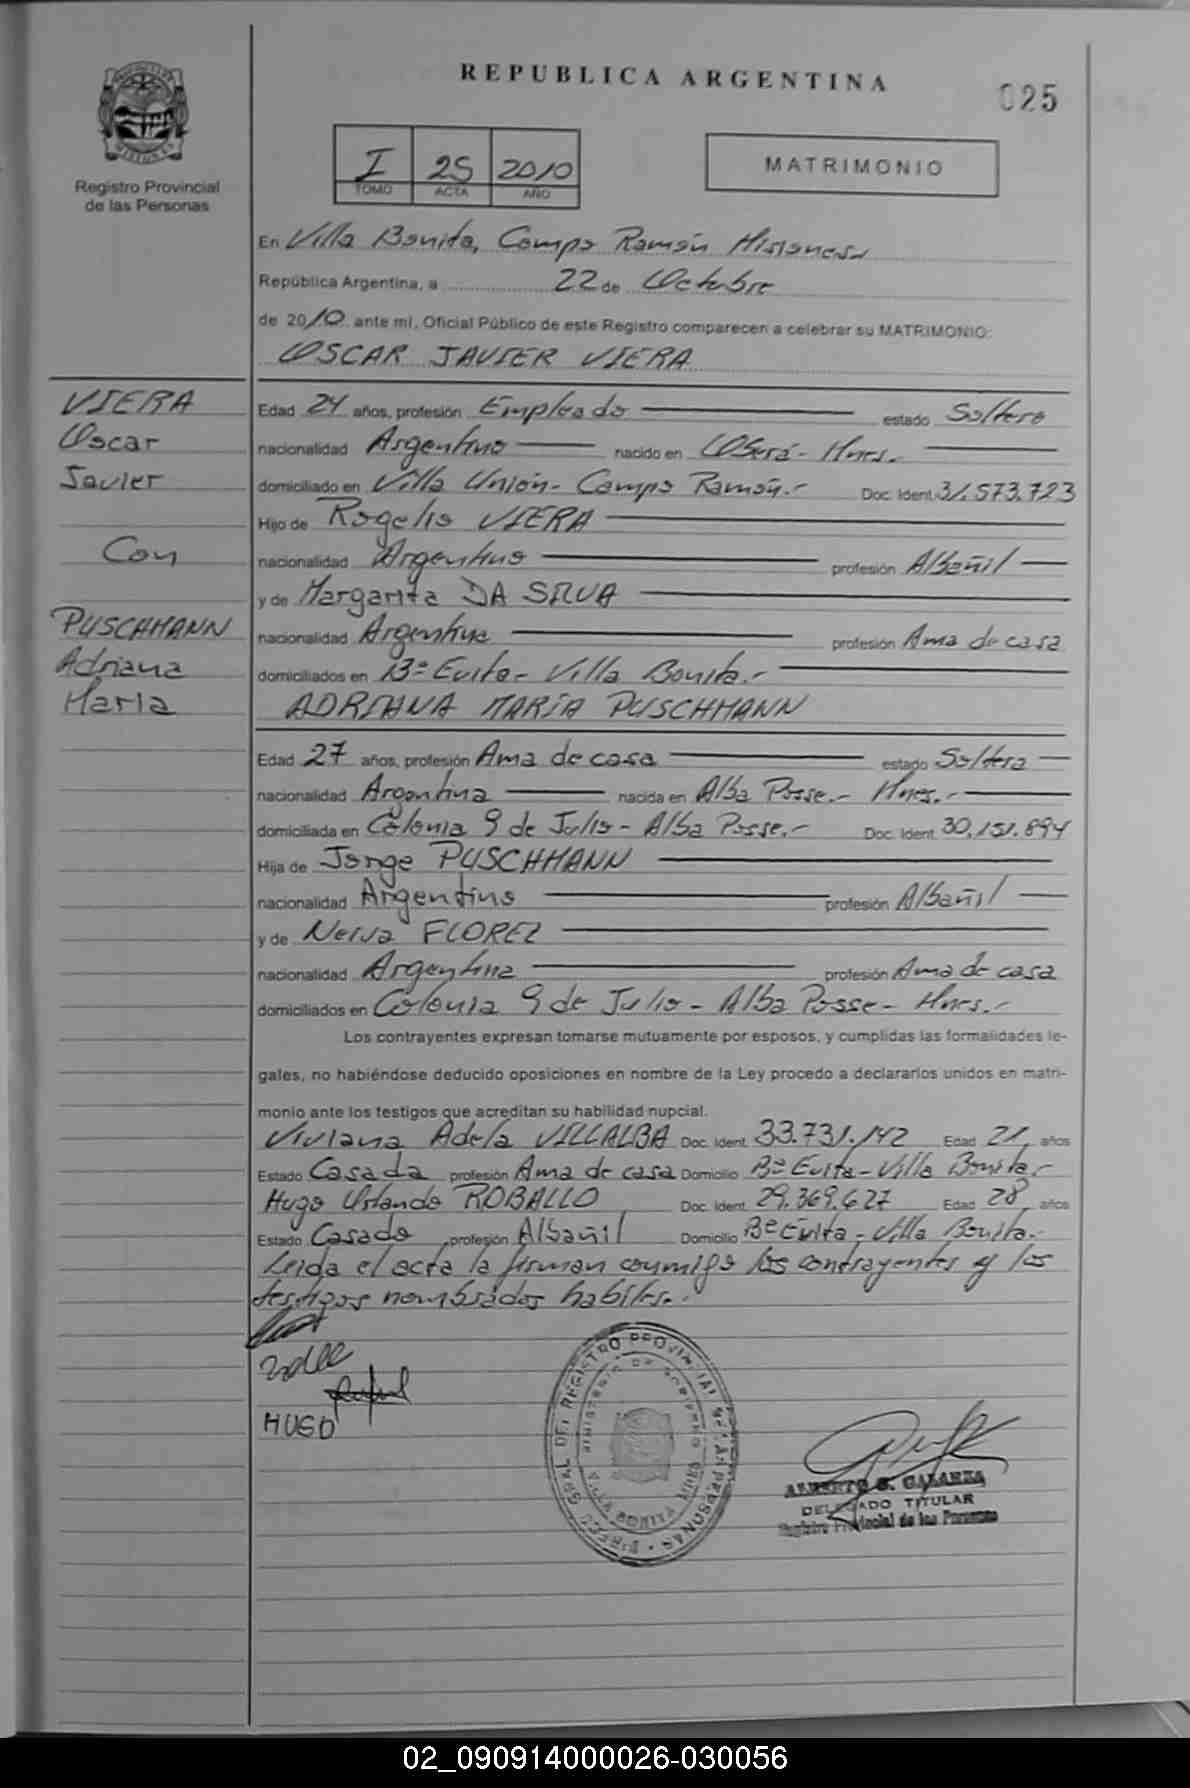 REPUBLICA ARGENTINA
025
Registro Provincial
de las Personas
I 25 2010
TOMO ACTA AÑO
MATRIMONIO
En Villa Bonita, Campo Ramón Misiones
República Argentina, a 22 de Octubre
de 2010 ante mí, Oficial Público de este Registro comparecen a celebrar su MATRIMONIO:
OSCAR JAVIER VIERA
VIERA
Oscar
Javier
Con
PUSCHMANN
Adriana
Maria
Edad 24 años, profesión Empleado estado Soltero
nacionalidad Argentino nacido en Oberá - Mnes.
domiciliado en Villa Unión - Campo Ramón.- Doc. Ident. 31.573.723
Hijo de Rogelio VIERA
nacionalidad Argentino profesión Albañil
y de Margarita DA SILVA
nacionalidad Argentina profesión Ama de casa
domiciliados en Bº Evita - Villa Bonita.-
ADRIANA MARIA PUSCHMANN
Edad 27 años, profesión Ama de casa estado Soltera
nacionalidad Argentina nacida en Alba Posse.- Mnes.-
domiciliada en Colonia 9 de Julio - Alba Posse.- Doc. Ident. 30.151.894
Hija de Jorge PUSCHMANN
nacionalidad Argentino profesión Albañil
y de Nelva FLOREZ
nacionalidad Argentina profesión Ama de casa
domiciliados en Colonia 9 de Julio - Alba Posse - Mnes.-
Los contrayentes expresan tomarse mutuamente por esposos, y cumplidas las formalidades le-
gales, no habiéndose deducido oposiciones en nombre de la Ley procedo a declararlos unidos en matri-
monio ante los testigos que acreditan su habilidad nupcial.
Viviana Adela VILLALBA Doc. Ident. 33.731.142 Edad 21 años
Estado Casada profesión Ama de casa Domicilio Bº Evita - Villa Bonita.-
Hugo Orlando ROBALLO Doc. Ident. 29.369.627 Edad 28 años
Estado Casado profesión Albañil Domicilio Bº Evita - Villa Bonita.-
Leida el acta la firman conmigo los contrayentes y los
testigos nombrados habiles.-
HUGO
DIREC. GRAL DEL REGISTRO PROVINCIAL DE LAS PERSONAS
MINISTERIO DE GOBIERNO
VILLA BONITA MNES
ALBERTO G. GALARZA
DELEGADO TITULAR
Registro Provincial de las Personas
02_090914000026-030056